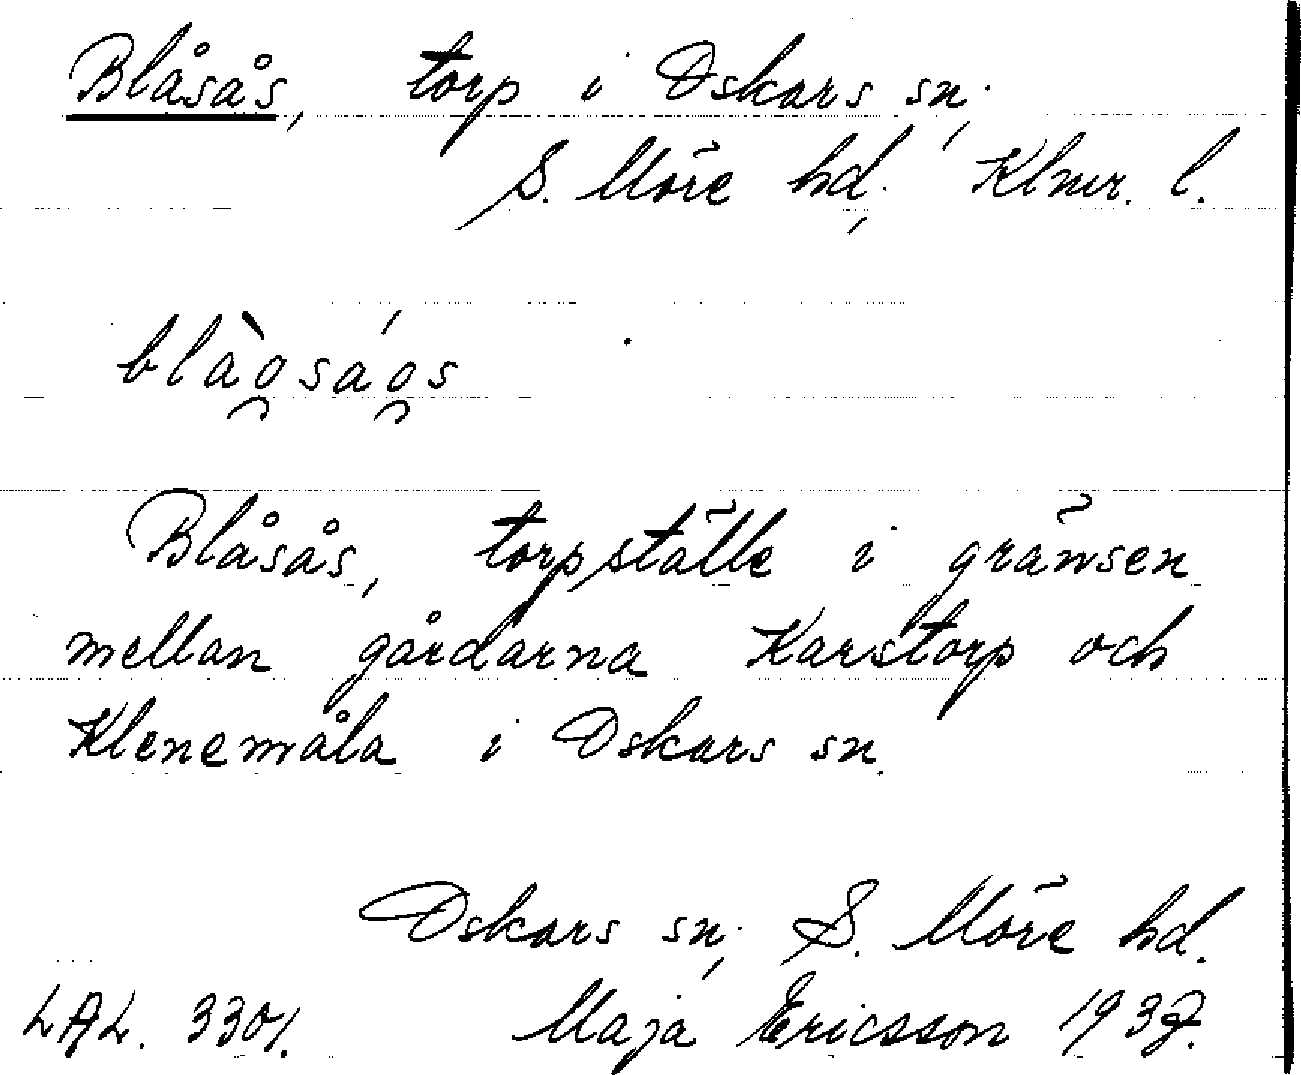 Blåsås, torp i Oskars sn.,
S. Möre hd., Klmr. l.
blào̯sáo̯s
Blåsås, torpställe i gränsen
mellan gårdarna Karstorp och
Klenemåla i Oskars sn.
Oskars sn., S. Möre hd.
LAL. 3301. Maja Ericsson 1937.